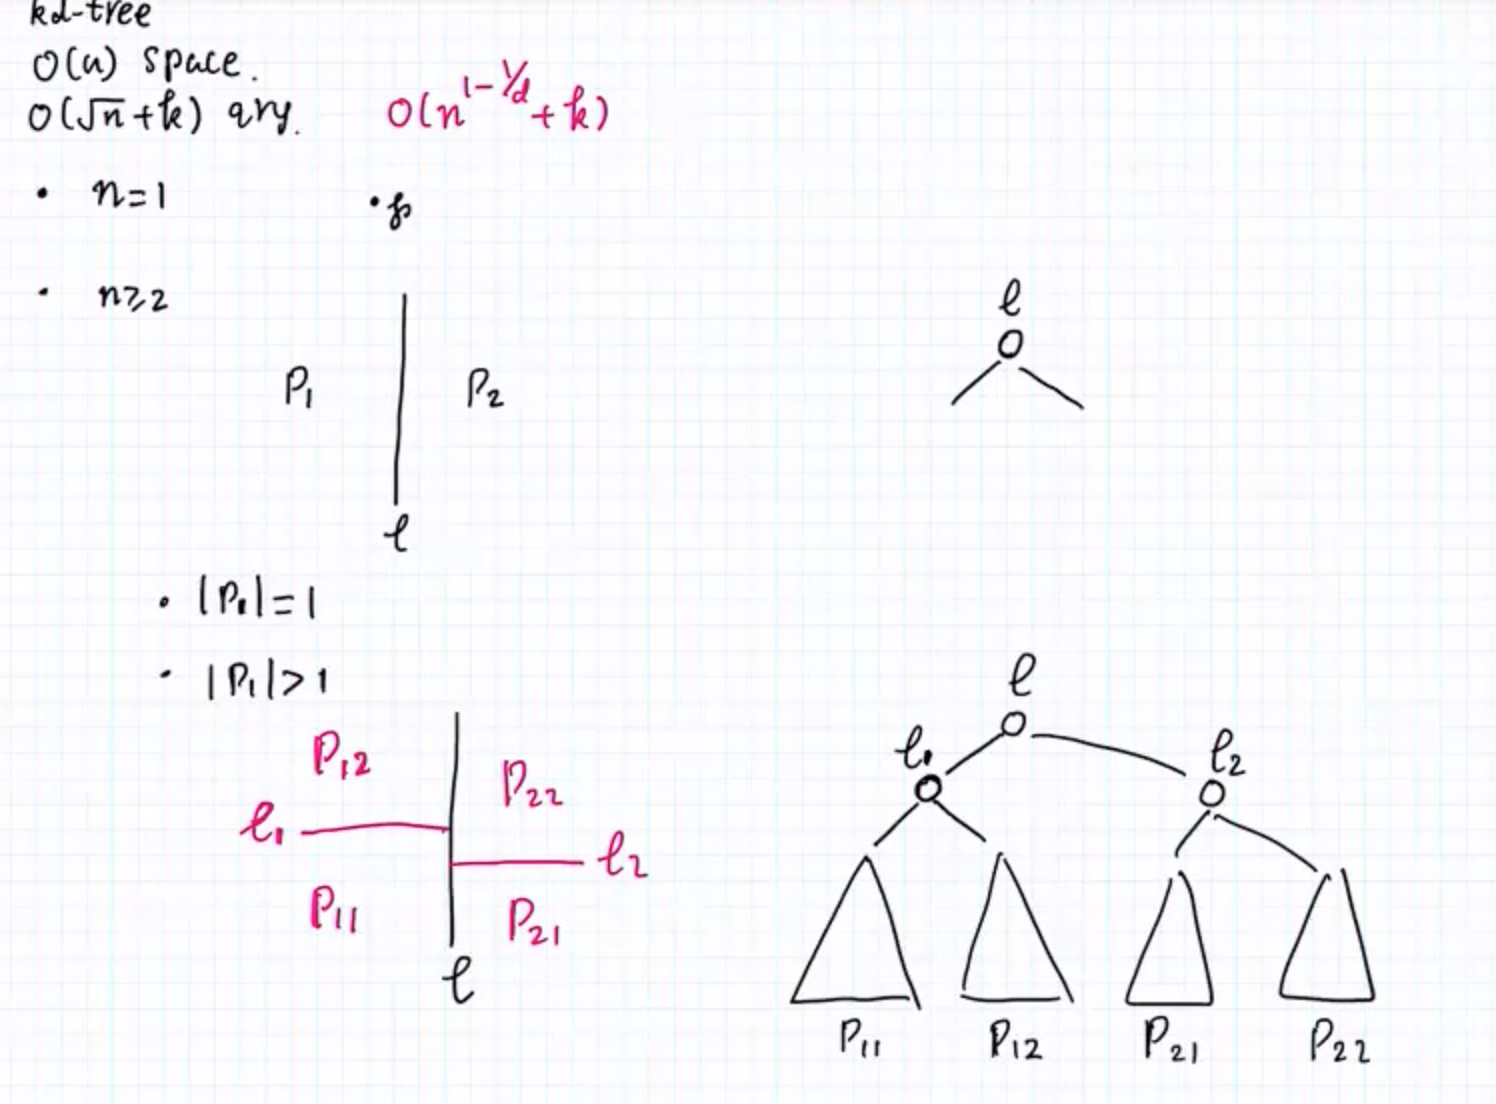 kd-tree
O(n) space.
O(√n+k) qry. O(n^{1-1/d}+k)
• n=1 •p
• n≥2
l
P₁ P₂
l
• |P₁|=1
• |P₁|>1
l
P₁₂ P₂₂ l₁ l₂
l₁ l₂
P₁₁ P₂₁
l
P₁₁ P₁₂ P₂₁ P₂₂